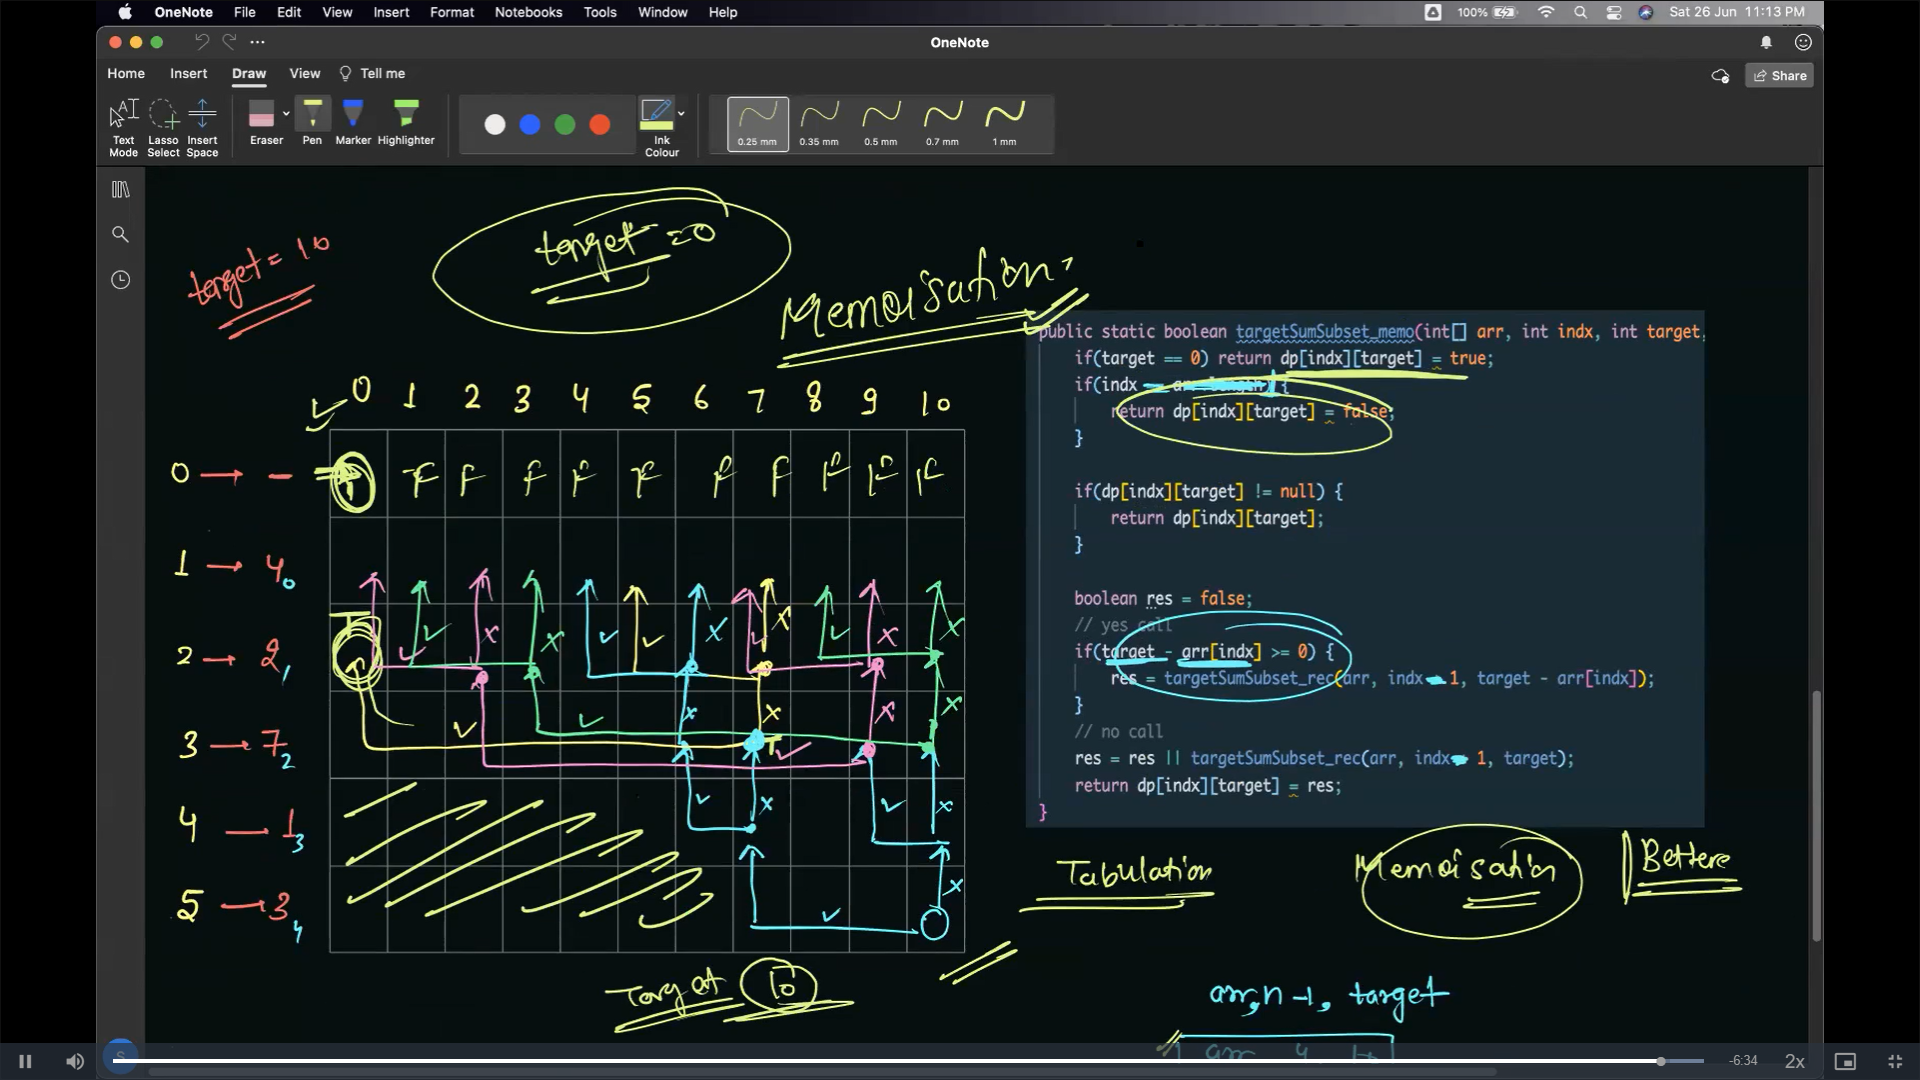 OneNote File Edit View Insert Format Notebooks Tools Window Help 100% Sat 26 Jun 11:13 PM
OneNote
Home Insert Draw View Tell me Share
Text Mode Lasso Select Insert Space Eraser Pen Marker Highlighter Ink Colour 0.25 mm 0.35 mm 0.5 mm 0.7 mm 1 mm
target = 10
target = 0
Memoisation
0 1 2 3 4 5 6 7 8 9 10
0 → - T F F F F F F F F F F
1 → 4 0
2 → 2 1 T
3 → 7 2 T
4 → 1 3
5 → 3 4
Target 10
public static boolean targetSumSubset_memo(int[] arr, int indx, int target,
if(target == 0) return dp[indx][target] = true;
if(indx {
return dp[indx][target] = false;
}
if(dp[indx][target] != null) {
return dp[indx][target];
}
boolean res = false;
// yes call
if(target - arr[indx] >= 0) {
res = targetSumSubset_rec(arr, indx - 1, target - arr[indx]);
}
// no call
res = res || targetSumSubset_rec(arr, indx - 1, target);
return dp[indx][target] = res;
}
Tabulation Memoisation Betters
arr, n-1, target
arr 4
-6:34 2x